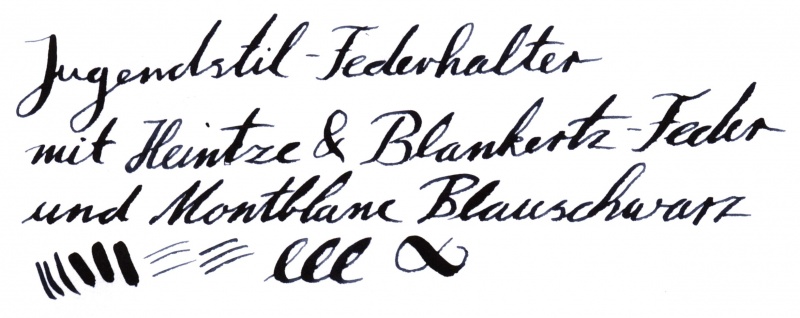 Jugendstil-Federhalter
mit Heintze & Blankertz-Feder
und Montblanc Blauschwarz